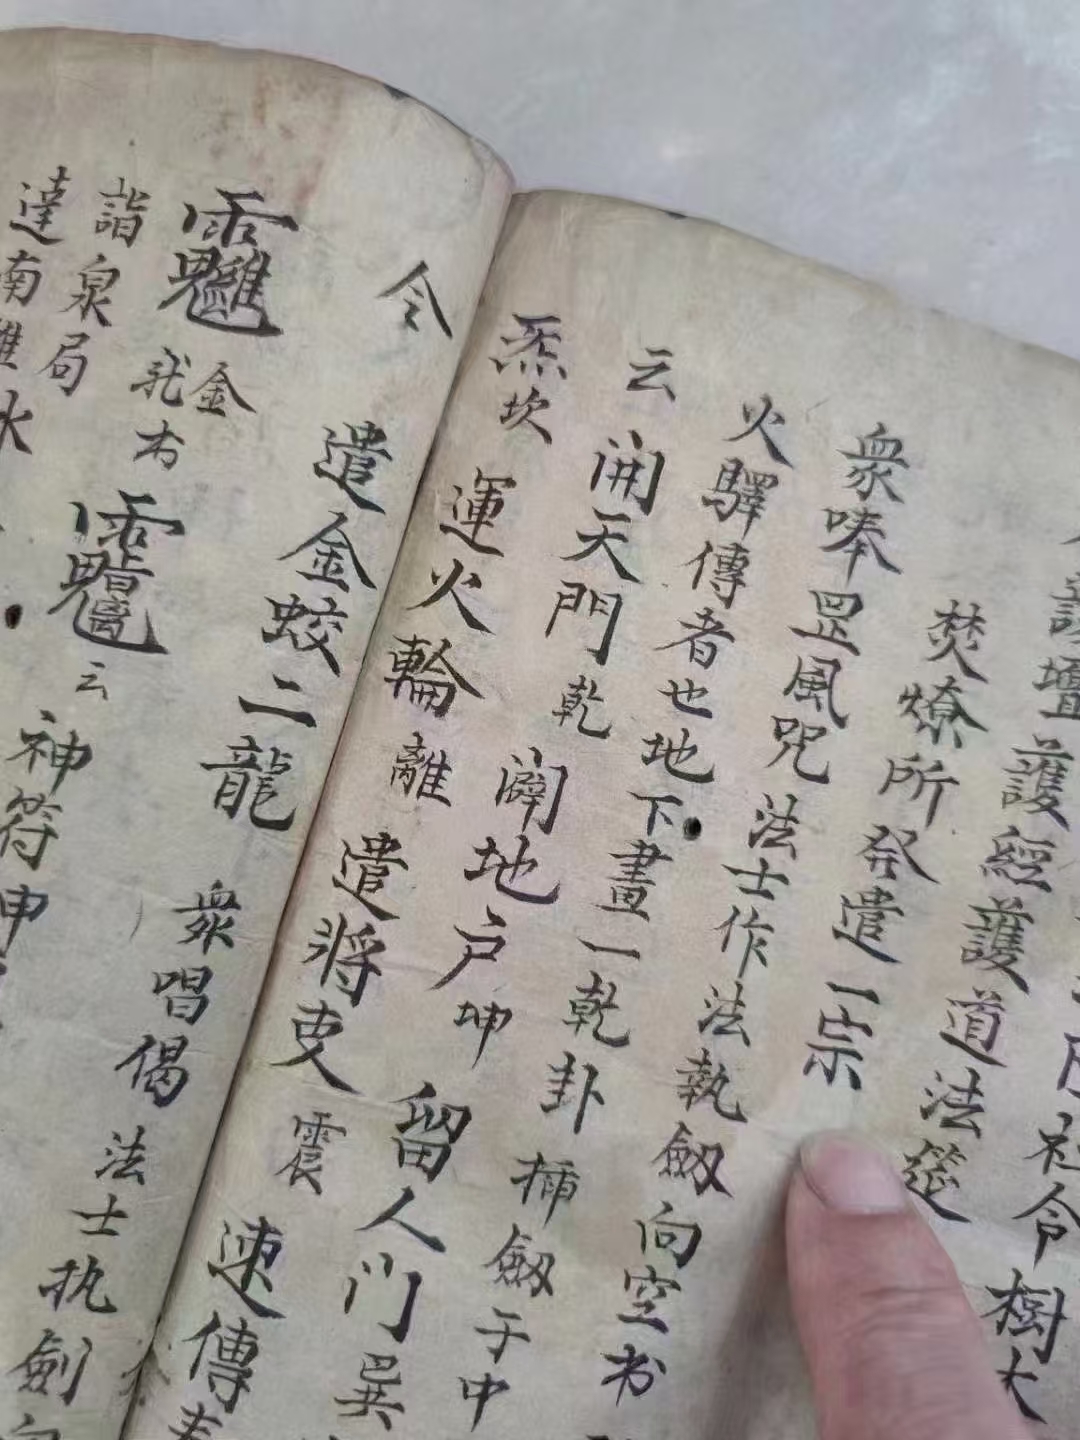 護壇
社令樹大
護經護道法筵
焚燎所發遣一宗
衆唪罡風咒法士作法執劍向空书
火驛傳者也地下畫一乾卦插劍于中
云開天門乾闢地户坤留人门巽
炁坎運火輪離遣將吏震速傳
令遣金蛟二龍衆唱偈法士执劍
金木云神符
詣泉局
達南
水